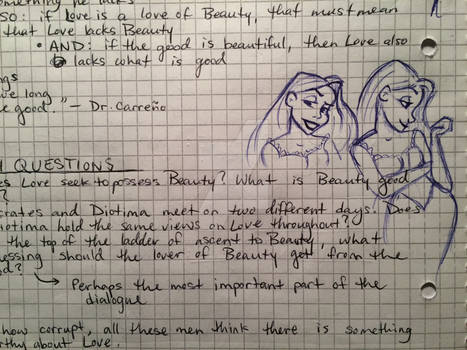 something he lacks
SO: if love is a love of Beauty, that must mean
that Love lacks Beauty
• AND: if the good is beautiful, then Love also
lacks what is good
ngs
we long
e good." – Dr. Carreño
QUESTIONS
es Love seek to possess Beauty? What is Beauty good
?
crates and Diotima meet on two different days. Does
iotima hold the same views on Love throughout?
the top of the ladder of ascent to Beauty, what
essing should the lover of Beauty get from the
d?
→ Perhaps the most important part of the
dialogue
how corrupt, all these men think there is something
rthy about Love.